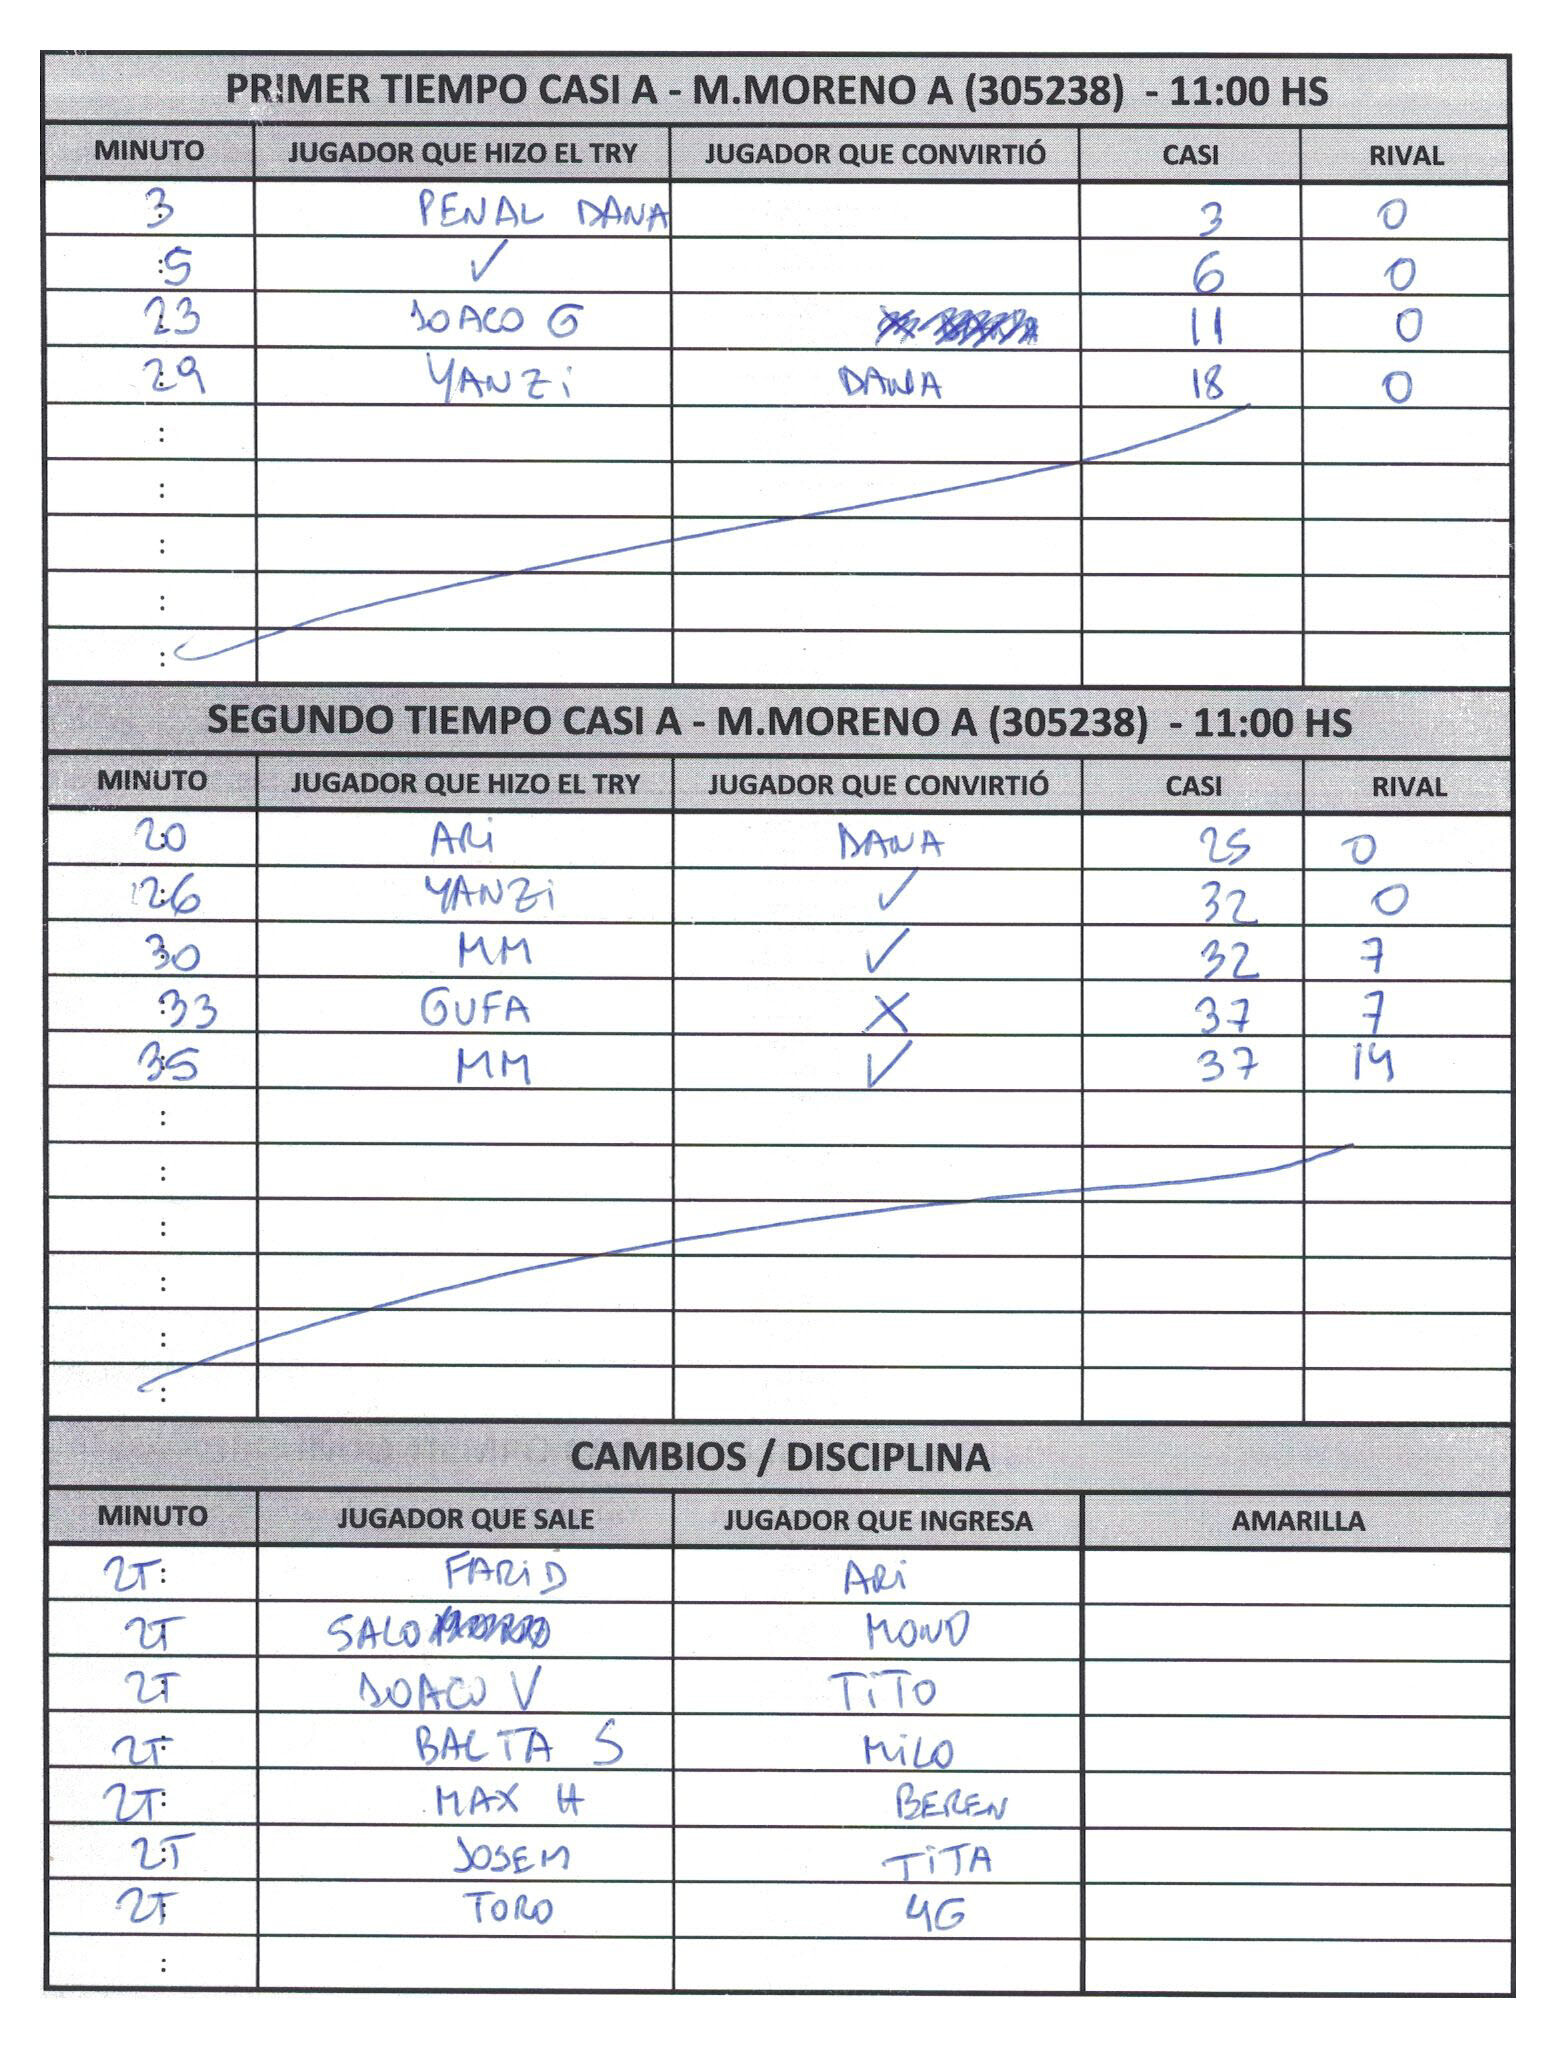 PRIMER TIEMPO CASI A - M.MORENO A (305238) - 11:00 HS
MINUTO JUGADOR QUE HIZO EL TRY JUGADOR QUE CONVIRTIÓ CASI RIVAL
3 PENAL DANA 3 0
:5 ✓ 6 0
23 JOACO G 11 0
29 YANZi DANA 18 0
:
:
:
:
:
SEGUNDO TIEMPO CASI A - M.MORENO A (305238) - 11:00 HS
MINUTO JUGADOR QUE HIZO EL TRY JUGADOR QUE CONVIRTIÓ CASI RIVAL
20 ARi DANA 25 0
26 YANZi ✓ 32 0
30 MM ✓ 32 7
:33 GUFA X 37 7
35 MM ✓ 37 14
:
:
:
:
:
:
CAMBIOS / DISCIPLINA
MINUTO JUGADOR QUE SALE JUGADOR QUE INGRESA AMARILLA
2T: FARiD ARi
2T SALO MONO
2T JOACO V TiTO
2T BALTA S MiLO
2T: MAX H BEREN
2T JOSEM TiTA
2T TORO 4G
: